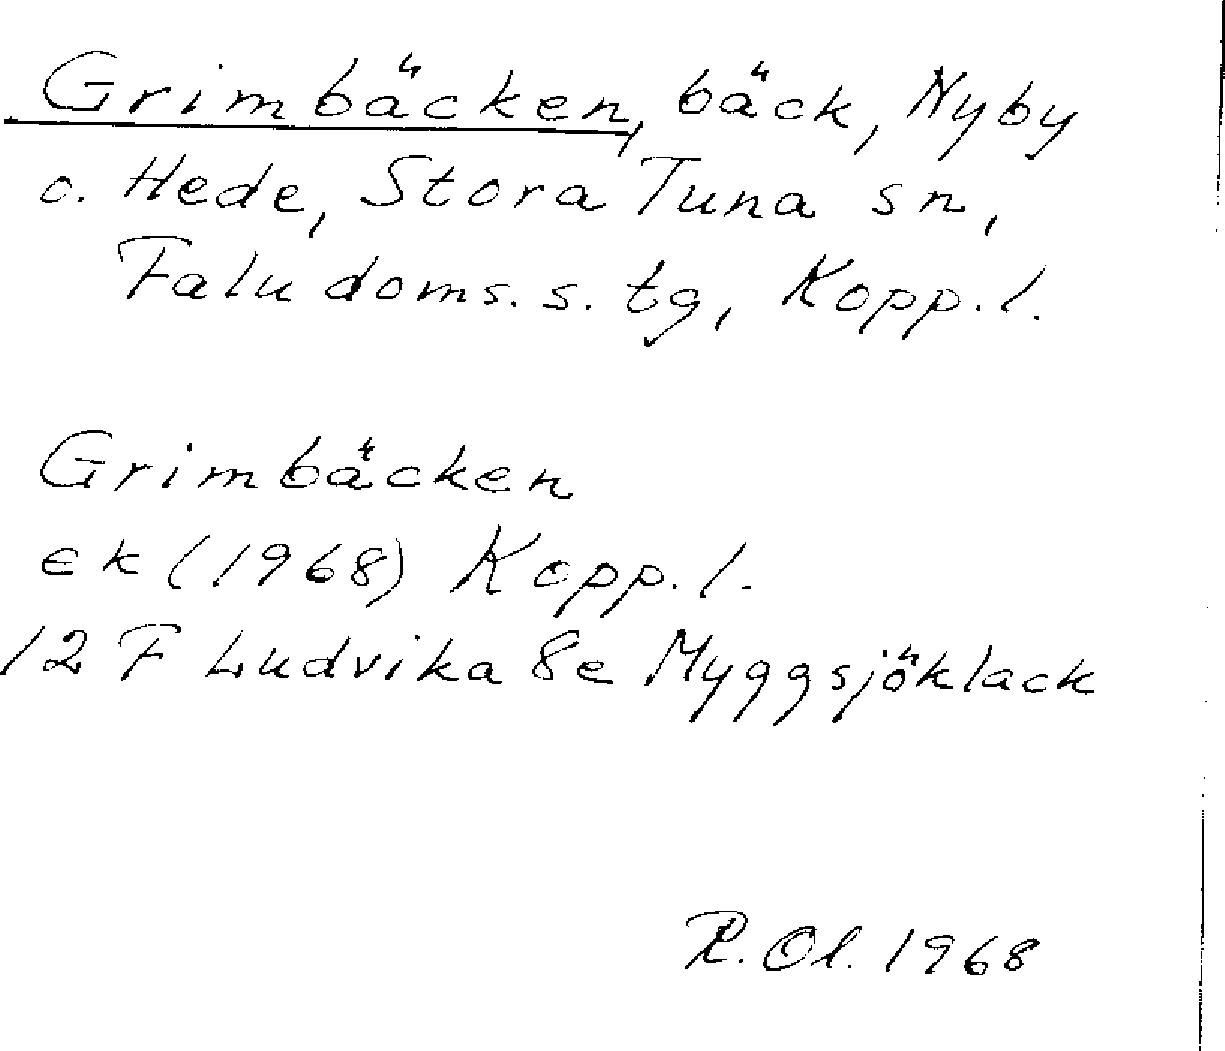 Grimbäcken, bäck, Nyby
o. Hede, Stora Tuna sn,
Falu doms. s. tg, Kopp. l.
Grimbäcken
ek (1968) Kopp. l.
12 F Ludvika 8e Myggsjöklack
R. Ol. 1968